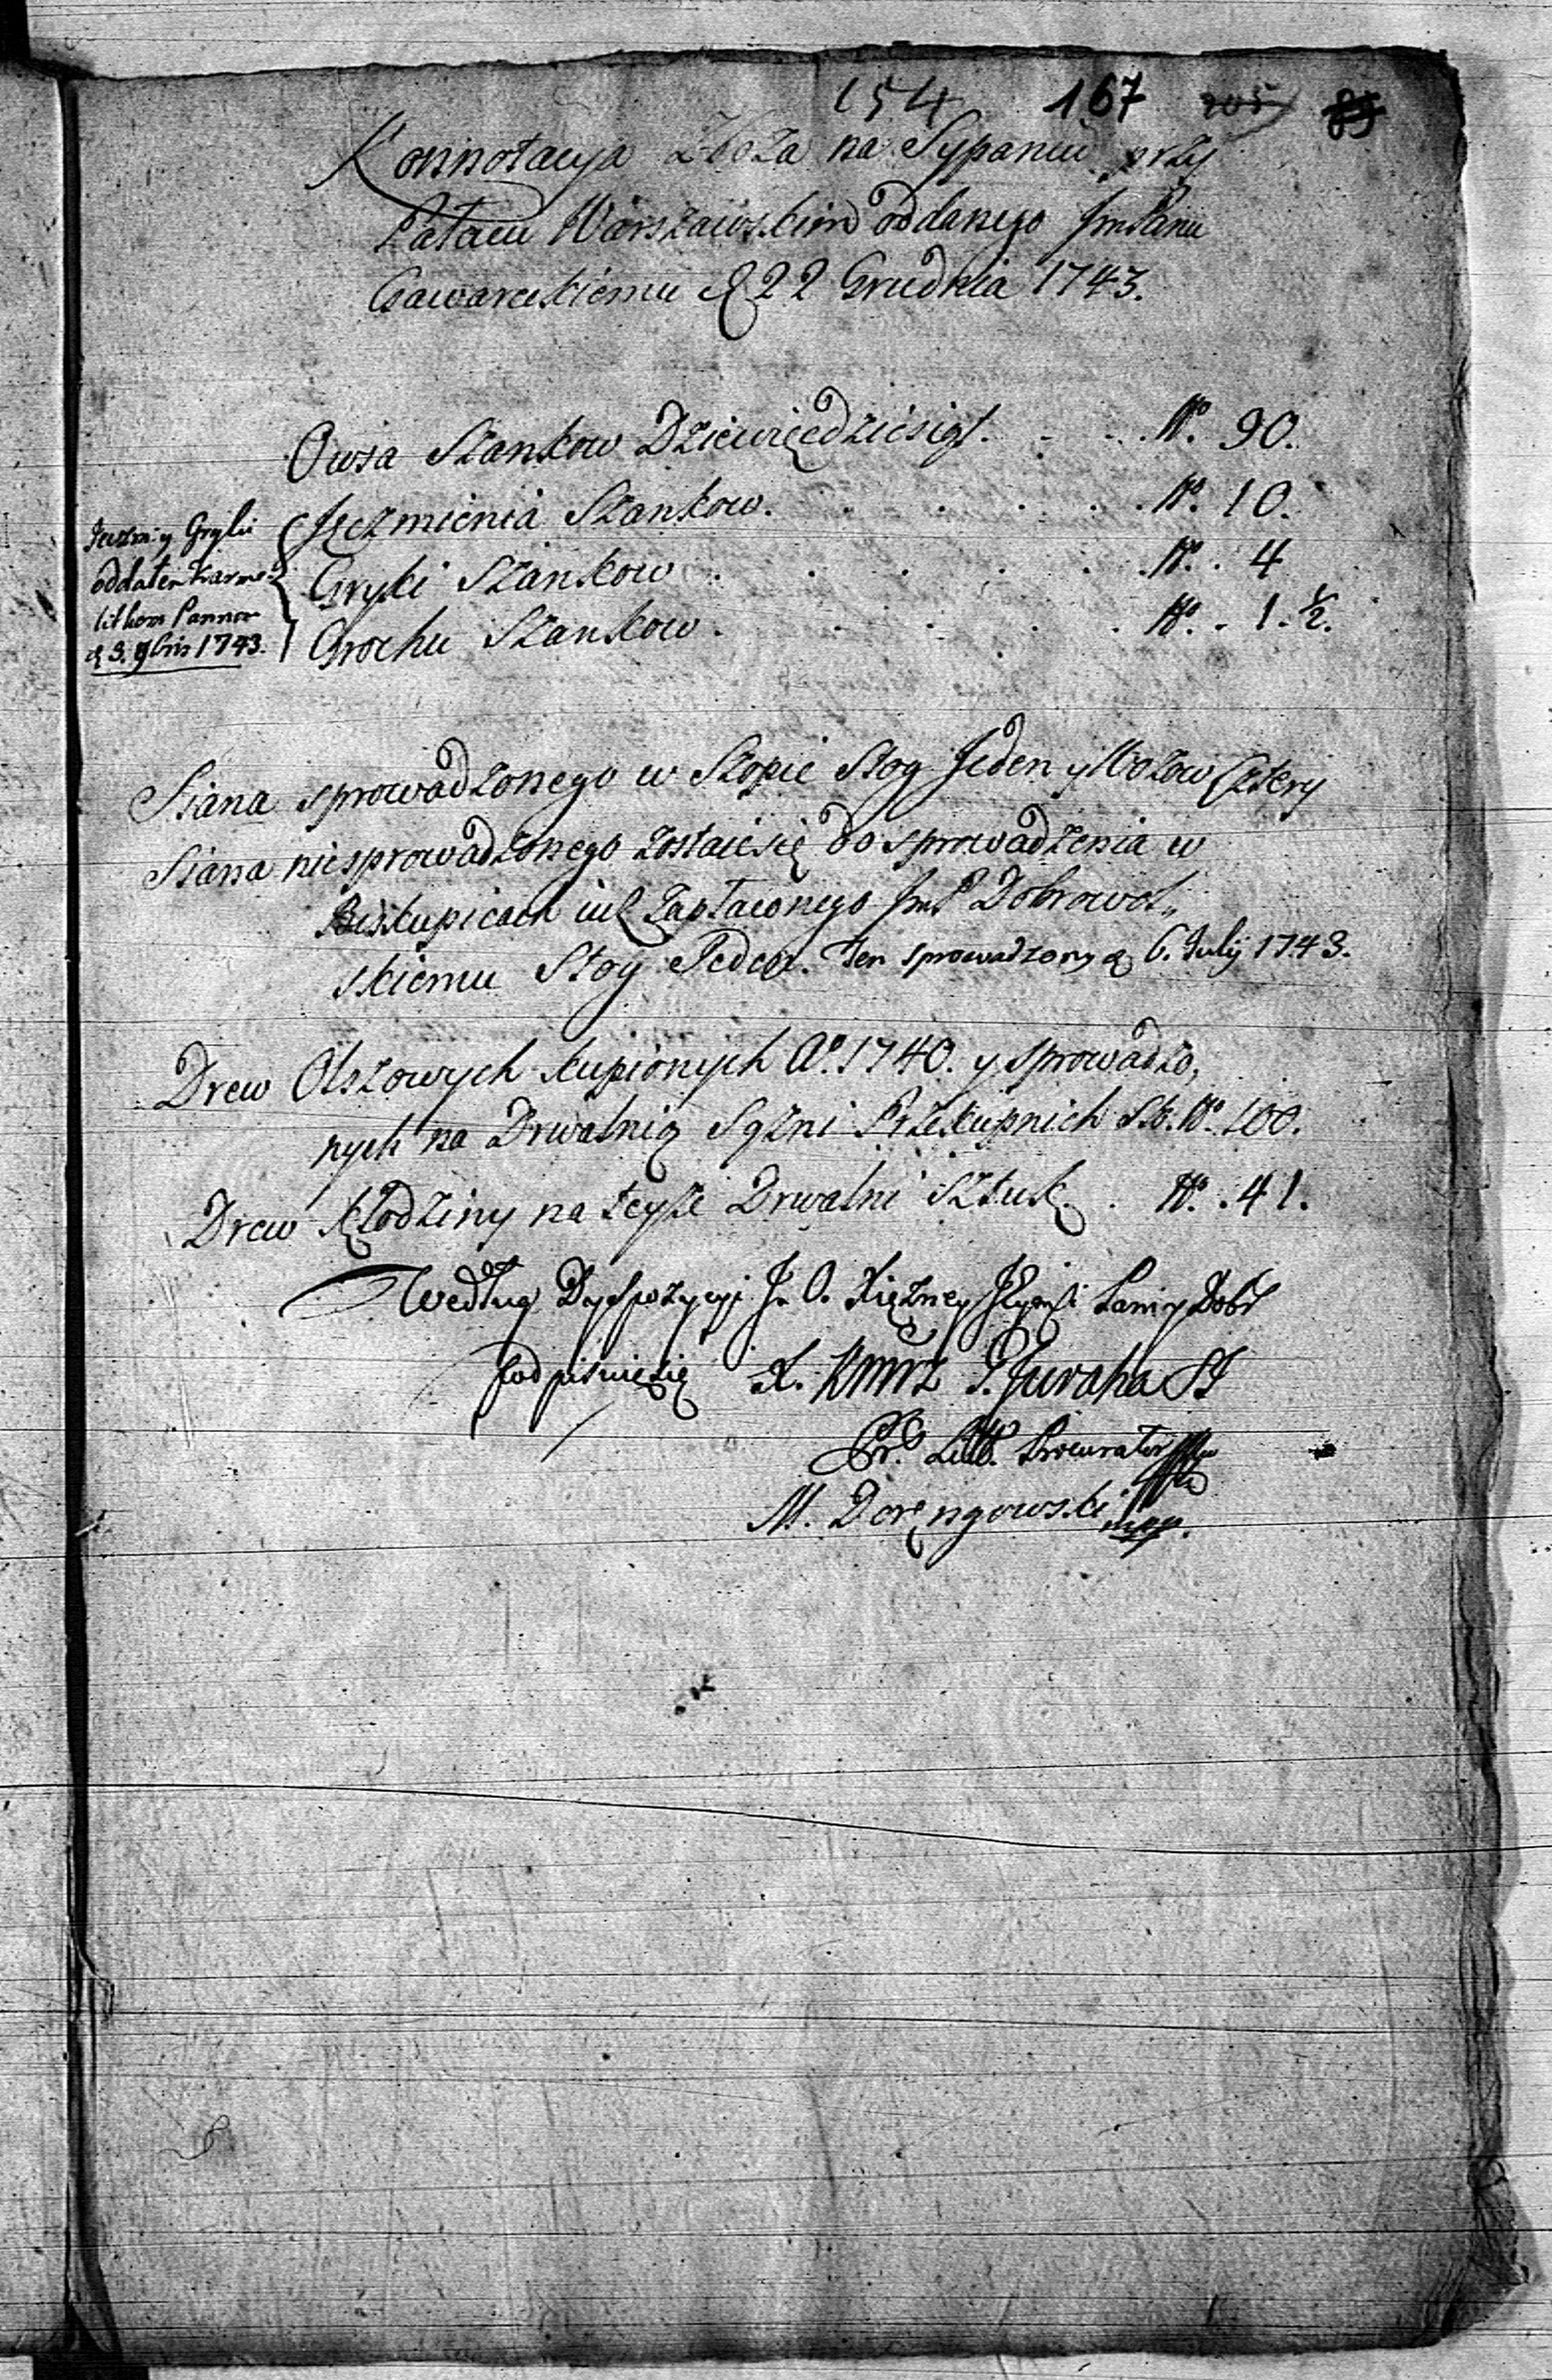 154 167 205 85
Konnotacya Zboża na Sypaniu przy
Pałacu Warszawskim oddanego JmPanu
Gawareckiemu d 22 Grudnia 1743.
Owsa Szankow Dziewięćdziesiąt. . . . No. 90.
Jęczmienia Szankow. . . . . . No. 10.
Gryki Szankow . . . . . No. . 4
Grochu Szankow . . . . . No. . 1. ½.
Jęczm: y Gryki
oddałem Karme-
litkom Pannom
d 3. 9bris 1743.
Siana sprowadzonego w Szopie Stog Jeden y Wozow Cztery
Siana niesprowadzonego zostaie się do sprowadzenia w
Biskupicach iuż zapłaconego JmP Dobrowol„
skiemu Stog Jeden. ten sprowadzony d 6. July 1743.
Drew Olszowych kupionych Ao. 1740. y sprowadzo,
nych na Drwalnią Sążni Przekupnich No. 100.
Drew Kłodziny na teyże Drwalni Sztuk . No. . 41.
Według Dyspozycyi J. O. Xiężney Jeymści Pani y Dobr
podpisuię się X. Procurator
M. Doręngowski mpp.